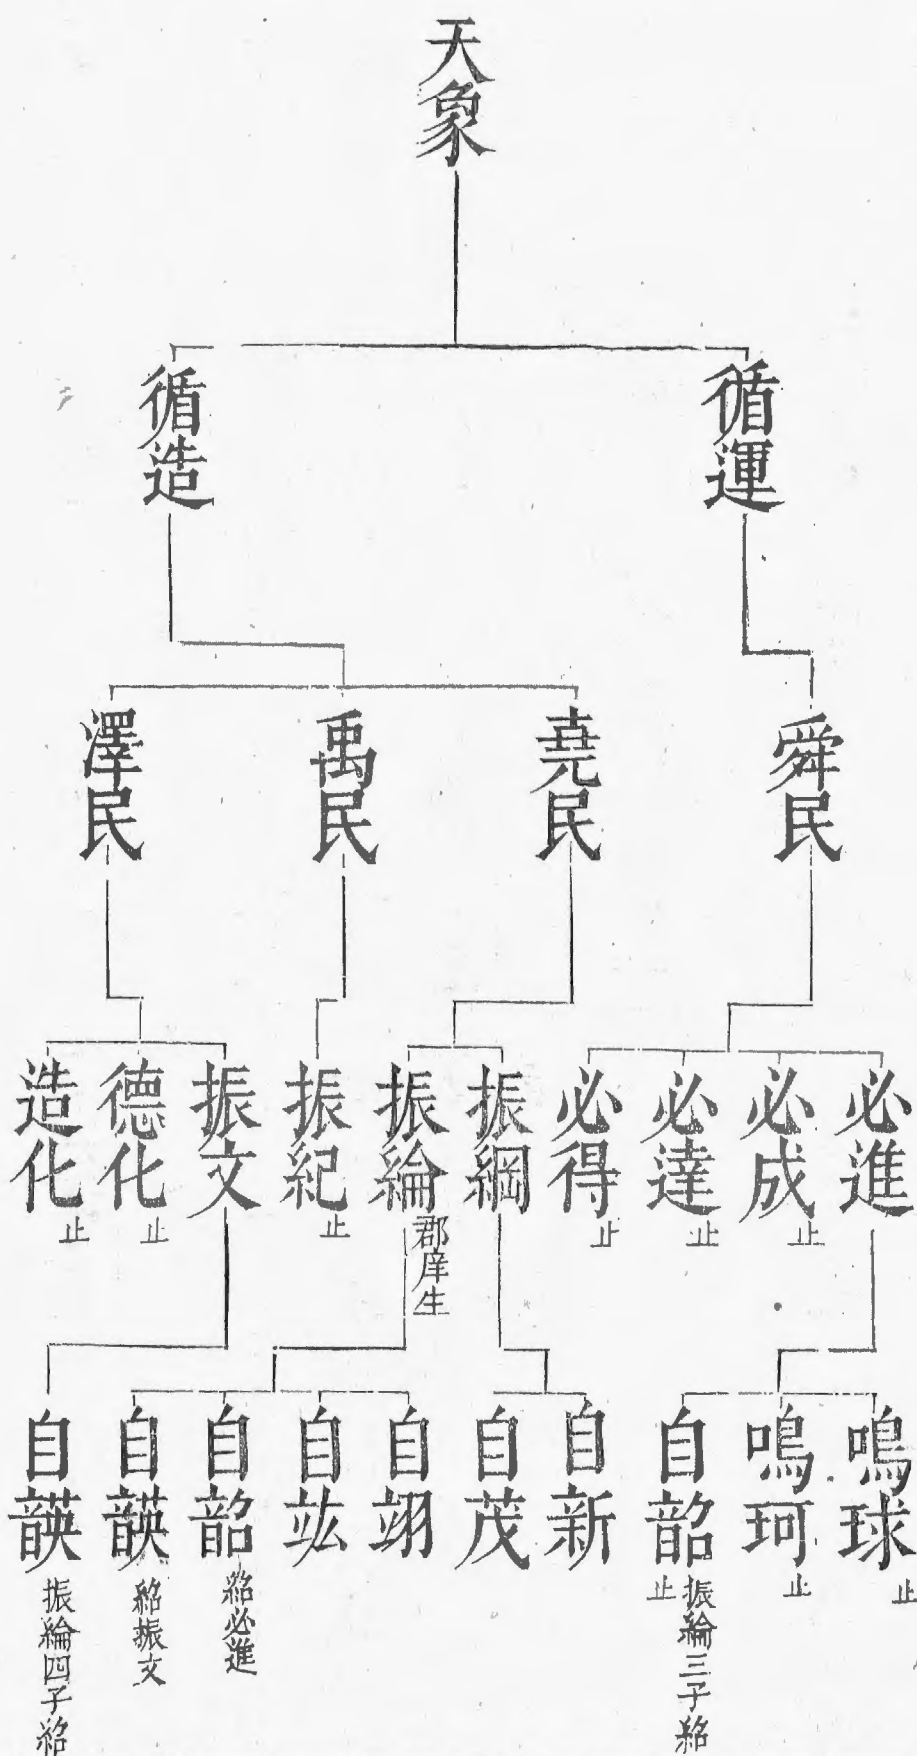 天象
循運
循造
舜民
堯民
禹民
澤民
必進
必成 止
必達 止
必得 止
振綱
振綸 郡庠生
振紀 止
振文
德化 止
造化 止
鳴球 止
鳴珂 止
自韶 振綸三子紹 止
自新
自茂
自翊
自竑
自韶 紹必進
自韺 紹振文
自韺 振綸四子紹